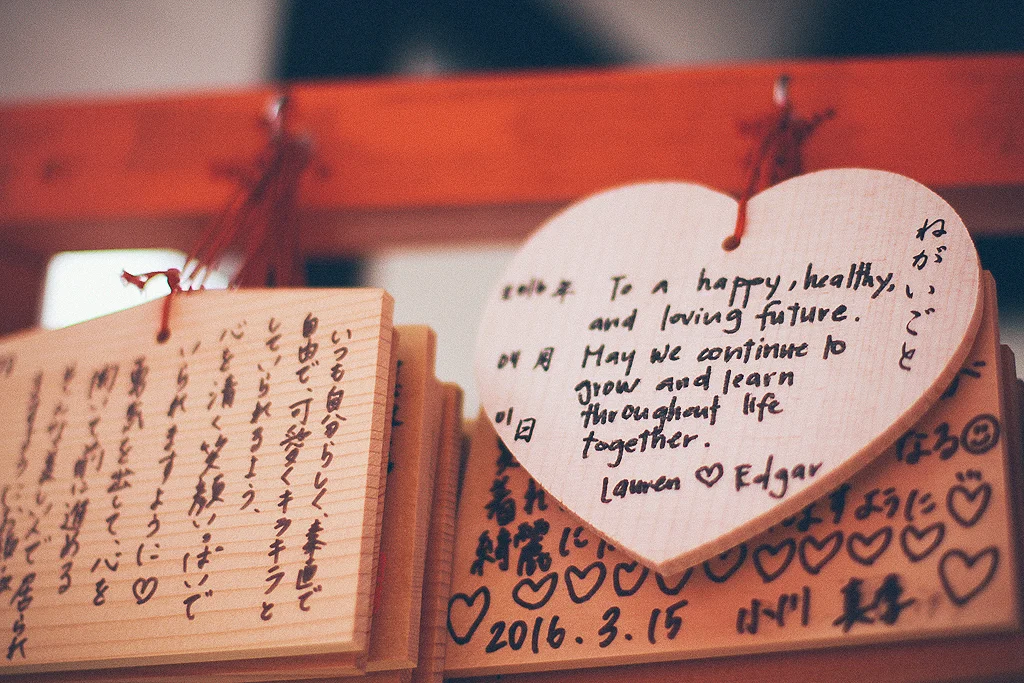 ねがいごと
2016年
04月
01日
To a happy, healthy,
and loving future.
May we continue to
grow and learn
throughout life
together.
Lauren ♡ Edgar
いつも自分らしく、素直で
自由で、可愛くキラキラと
していられるよう、
心を清く笑顔いっぱいで
いられますように♡
勇気を出して、心を
開いて前に進める
なる
ますように♡
綺麗に
♡♡♡♡♡♡♡♡♡
2016.3.15 小川 真